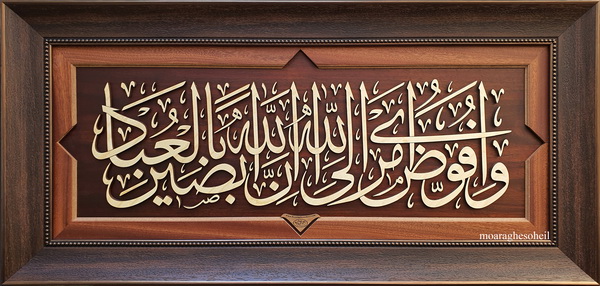 وَأُفَوِّضُ أَمْرِي إِلَى اللَّهِ إِنَّ اللَّهَ بَصِيرٌ بِالْعِبَادِ
moaraghesoheil